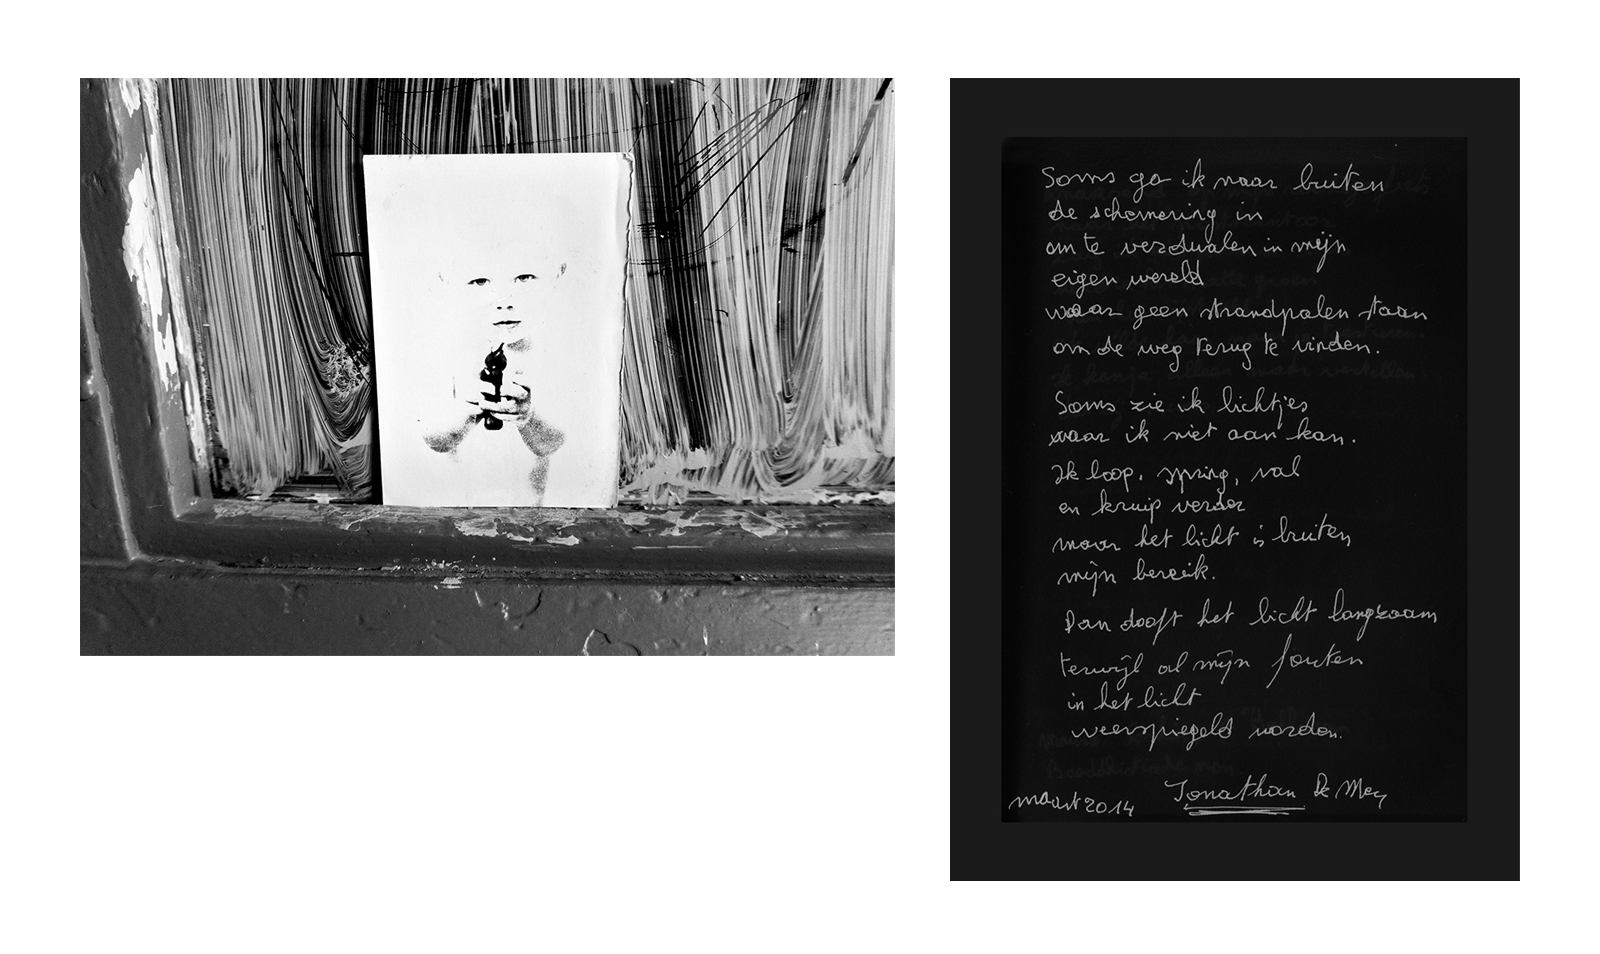 Soms ga ik naar buiten
de schemering in
om te verdwalen in mijn
eigen wereld
waar geen strandpalen staan
om de weg terug te vinden.
Soms zie ik lichtjes
waar ik niet aan kan.
Ik loop, spring, val
en kruip verder
maar het licht is buiten
mijn bereik.
Dan dooft het licht langzaam
terwijl al mijn fouten
in het licht
weerspiegeld worden.
maart 2014 Jonathan De Mey